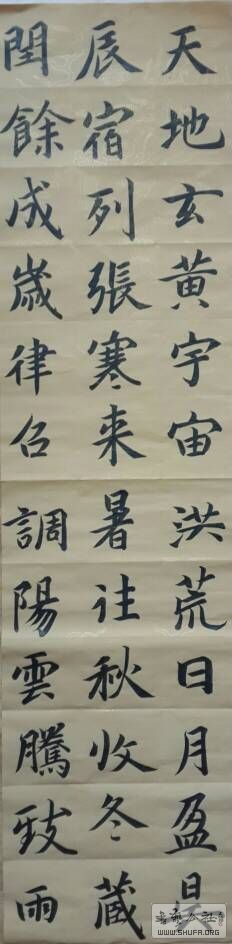 天地玄黃宇宙洪荒日月盈昃
辰宿列張寒来暑往秋收冬藏
閏餘成歲律召調陽雲騰致雨
WWW.SHUFA.ORG